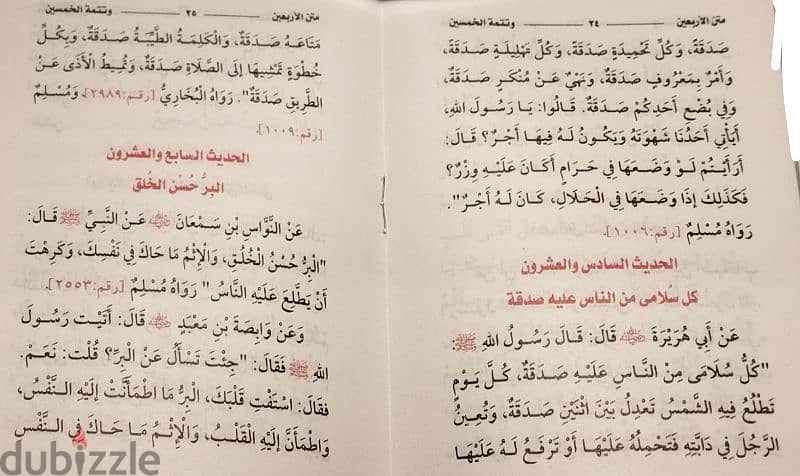 متن الأربعين ٢٤ وتتمة الخمسين
صَدَقَةٌ، وَكُلِّ تَحْمِيدَةٍ صَدَقَةً، وَكُلِّ تَهْلِيلَةٍ صَدَقَةً،
وَأَمْرٌ بِمَعْرُوفٍ صَدَقَةٌ، وَنَهْيٌ عَنْ مُنْكَرٍ صَدَقَةٌ،
وَفِي بُضْعِ أَحَدِكُمْ صَدَقَةٌ. قَالُوا: يَا رَسُولَ اللهِ،
أَيَأْتِي أَحَدُنَا شَهْوَتَهُ وَيَكُونُ لَهُ فِيهَا أَجْرٌ؟ قَالَ:
أَرَأَيْتُمْ لَوْ وَضَعَهَا فِي حَرَامٍ أَكَانَ عَلَيْهِ وِزْرٌ؟
فَكَذَلِكَ إِذَا وَضَعَهَا فِي الْحَلَالِ، كَانَ لَهُ أَجْرٌ".
رَوَاهُ مُسْلِمٌ [رقم:١٠٠٦].
الحديث السادس والعشرون
كل سُلامى من الناس عليه صدقة
عَنْ أَبِي هُرَيْرَةَ ﷺ قَالَ: قَالَ رَسُولُ اللهِ ﷺ:
"كُلُّ سُلَامَى مِنَ النَّاسِ عَلَيْهِ صَدَقَةٌ، كُلَّ يَوْمٍ
تَطْلُعُ فِيهِ الشَّمْسُ تَعْدِلُ بَيْنَ اثْنَيْنِ صَدَقَةٌ، وَتُعِينُ
الرَّجُلَ فِي دَابَّتِهِ فَتَحْمِلُهُ عَلَيْهَا أَوْ تَرْفَعُ لَهُ عَلَيْهَا
متن الأربعين ٢٥ وتتمة الخمسين
مَتَاعَهُ صَدَقَةٌ، وَالْكَلِمَةُ الطَّيِّبَةُ صَدَقَةٌ، وَبِكُلِّ
خُطْوَةٍ تَمْشِيهَا إِلَى الصَّلَاةِ صَدَقَةٌ، وَتُمِيطُ الْأَذَى عَنْ
الطَّرِيقِ صَدَقَةٌ". رَوَاهُ الْبُخَارِيُّ [رقم:٢٩٨٩]، وَمُسْلِمٌ
[رقم:١٠٠٩].
الحديث السابع والعشرون
البِرُّ حُسْن الخُلق
عَنْ النَّوَّاسِ بْنِ سَمْعَانَ عَنْ النَّبِيِّ ﷺ قَالَ:
"الْبِرُّ حُسْنُ الْخُلُقِ، وَالْإِثْمُ مَا حَاكَ فِي نَفْسِكَ، وَكَرِهْتَ
أَنْ يَطَّلِعَ عَلَيْهِ النَّاسُ" رَوَاهُ مُسْلِمٌ [رقم:٢٥٥٣].
وَعَنْ وَابِصَةَ بْنِ مَعْبَدٍ قَالَ: أَتَيْت رَسُولَ
اللهِ ﷺ فَقَالَ: "جِئْتَ تَسْأَلُ عَنْ الْبِرِّ؟ قُلْت: نَعَمْ.
فقَالَ: اسْتَفْتِ قَلْبَكَ، الْبِرُّ مَا اطْمَأَنَّتْ إِلَيْهِ النَّفْسُ،
وَاطْمَأَنَّ إِلَيْهِ الْقَلْبُ، وَالْإِثْمُ مَا حَاكَ فِي النَّفْسِ
dubizzle